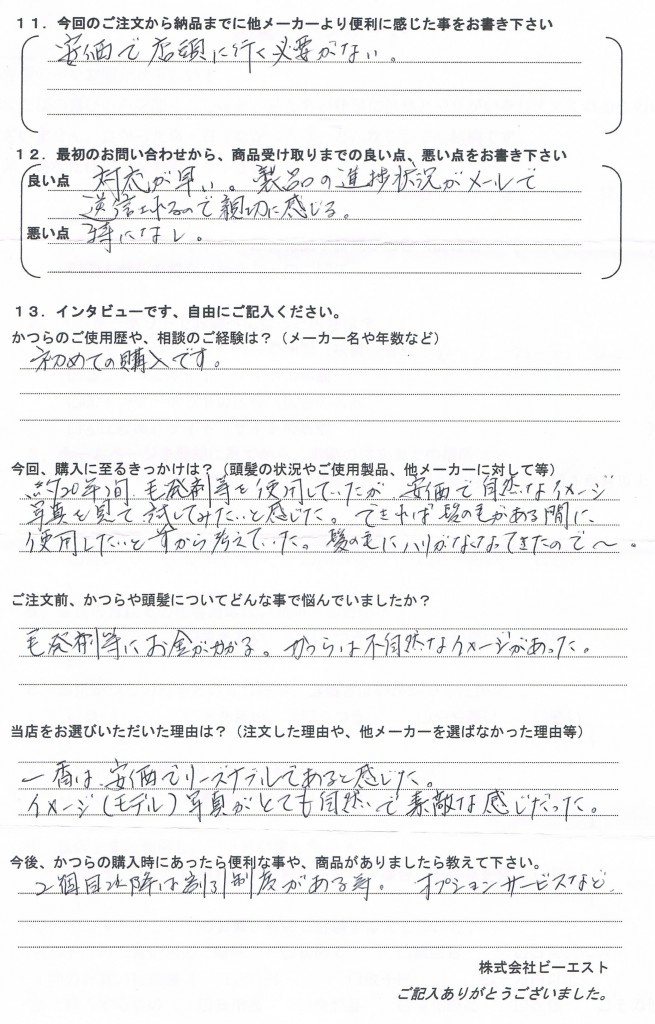 １１．今回のご注文から納品までに他メーカーより便利に感じた事をお書き下さい
安価で店頭に行く必要がない。
１２．最初のお問い合わせから、商品受け取りまでの良い点、悪い点をお書き下さい
良い点 対応が早い。製品の進捗状況がメールで
送信されるので親切に感じる。
悪い点 特になし。
１３．インタビューです、自由にご記入ください。
かつらのご使用歴や、相談のご経験は？（メーカー名や年数など）
初めての購入です。
今回、購入に至るきっかけは？（頭髪の状況やご使用製品、他メーカーに対して等）
約20年間、毛発剤等を使用していたが、安価で自然なイメージ
写真を見て試してみたいと感じた。できれば髪の毛がある間に
使用したいと から考えていた。髪の毛にハリがなくなってきたので〜。
ご注文前、かつらや頭髪についてどんな事で悩んでいましたか？
毛発剤等にお金がかかる。かつらは不自然なイメージがあった。
当店をお選びいただいた理由は？（注文した理由や、他メーカーを選ばなかった理由等）
一番は、安価でリーズナブルであると感じた。
イメージ（モデル）写真がとても自然で素敵な感じだった。
今後、かつらの購入時にあったら便利な事や、商品がありましたら教えて下さい。
2個目以降は割引制度がある等。オプションサービスなど、
株式会社ビーエスト
ご記入ありがとうございました。